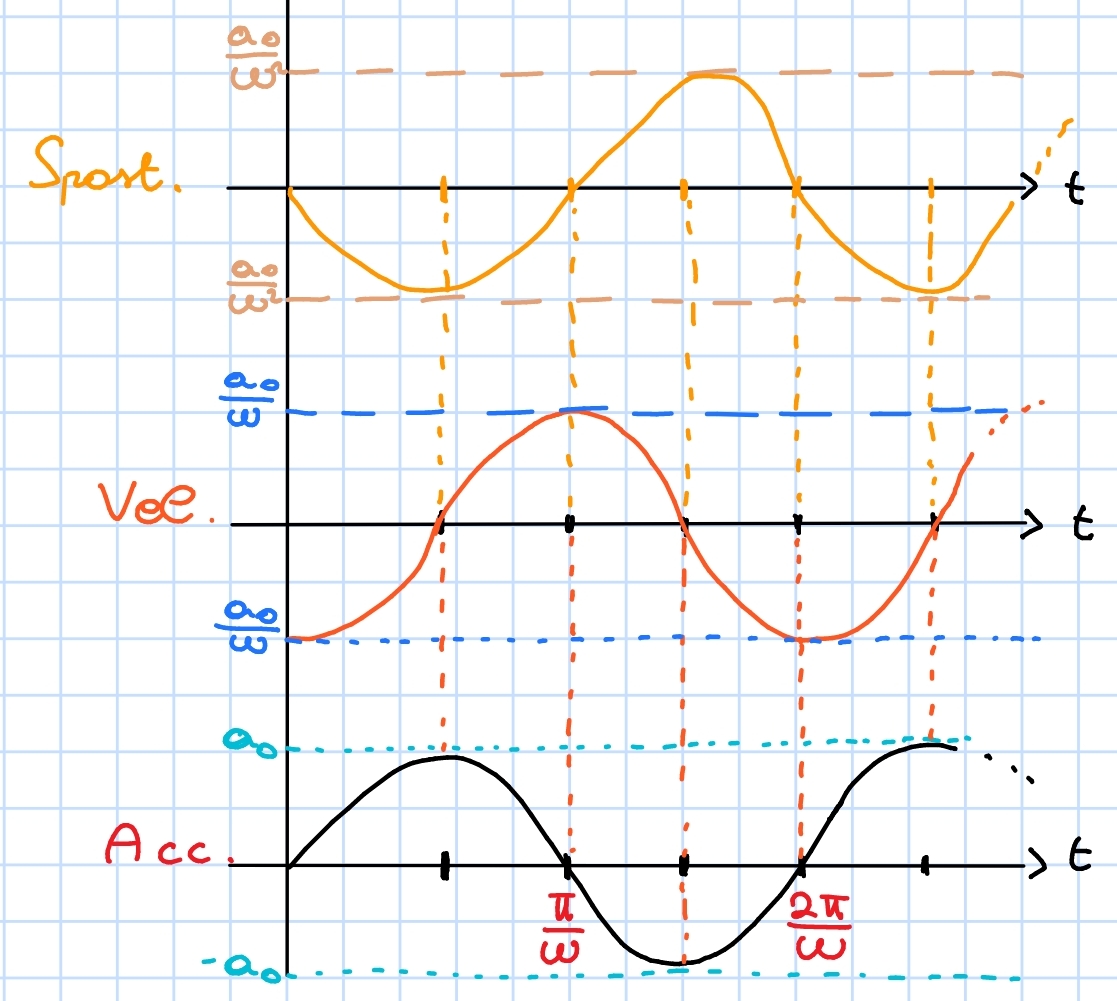 a₀/ω²
Spost.
t
a₀/ω²
a₀/ω
Vel.
t
a₀/ω
a₀
Acc.
t
π/ω
2π/ω
-a₀